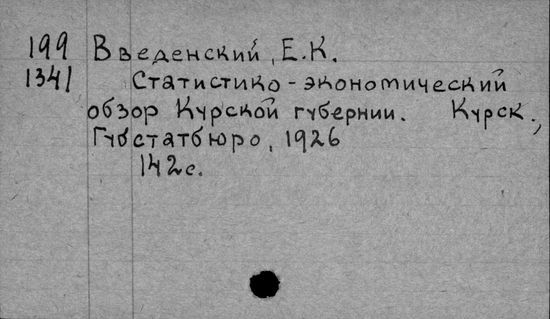 199 Введенский, Е.К.
1341 Статистико-экономический
обзор Курской губернии. Курск.,
Губстатбюро, 1926
142с.